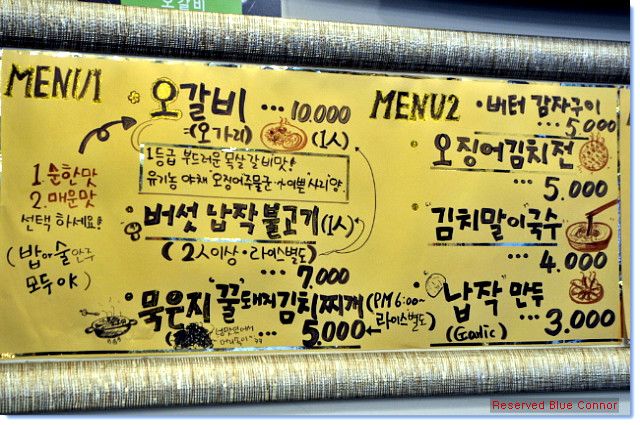 오갈비
MENU1
오갈비 ... 10.000
=(오가리) (1人)
1등급 부드러운 목살 갈비맛!
유기농 야채
1 순한맛
2 매운맛
선택 하세요!
(밥 or 술안주
모두 OK)
버섯 납작 불고기 (1人)
(2人이상·라이스별도)
... 7,000
묵은지 "꿀"돼지김치찌개 (PM 6:00~
라이스별도)
... 5.000
MENU2
·버터 감자구이
... 5.000
오징어김치전
... 5.000
"김치말이"국수
... 4.000
"납작"만두
(Garlic) ... 3.000
Reserved Blue Connor